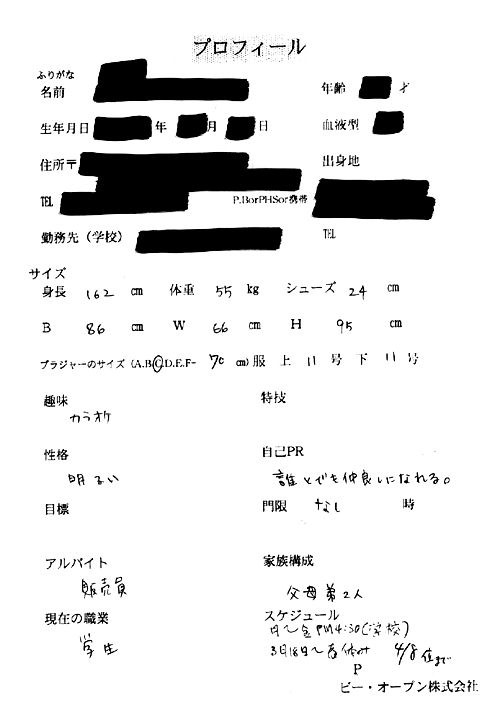 プロフィール
ふりがな
名前 年齢 才
生年月日 年 月 日 血液型
住所〒 出身地
TEL P.BorPHSor携帯
勤務先（学校） TEL
サイズ
身長 162 cm 体重 55 kg シューズ 24 cm
B 86 cm W 66 cm H 95 cm
ブラジャーのサイズ (A.B.C.D.E.F- 70 cm) 服 上 11 号 下 11 号
趣味 特技
カラオケ
性格 自己PR
明るい 誰とでも仲良しになれる。
目標 門限 なし 時
アルバイト 家族構成
販売員 父母弟2人
現在の職業 スケジュール
学生 月〜金PM4:30(学校)
3月18日〜春休み 4/8位まで
P
ビー・オープン株式会社